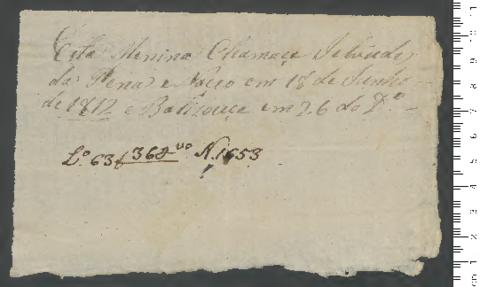 Esta Menina Chamace Jetrudes
da Pena e Naceo em 18 de Junho
de 1812 e Bautizouce em 26 do Dº
Lº 63 f 368 vº N. 1653